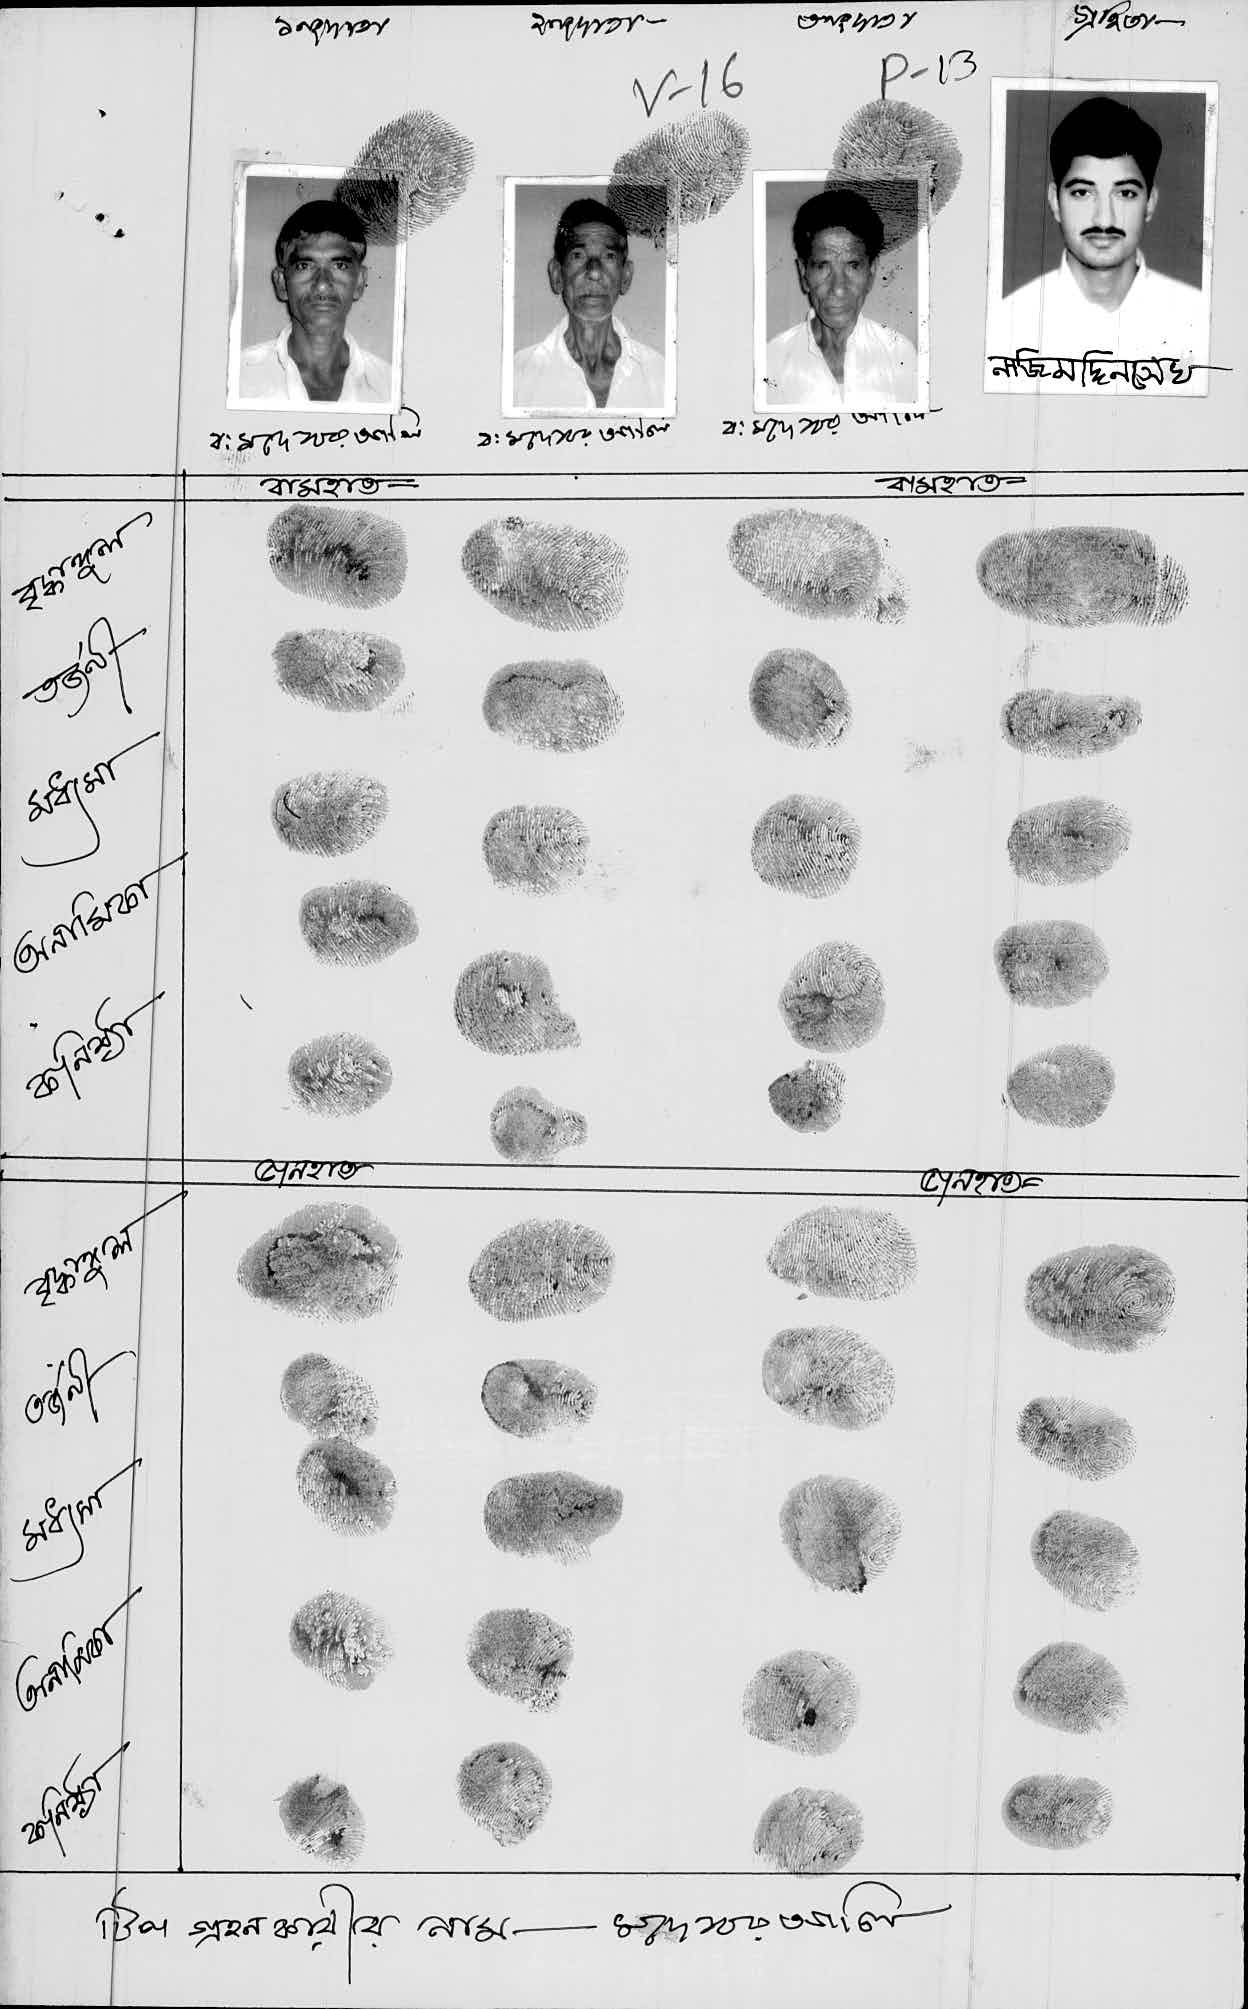 ১নং দাতা ২নং দাতা ৩নং দাতা গ্রহিতা
V-16 P-13
নাজিমদ্দিন সেখ
ব: আলি ব: আলি ব: আলি
বামহাত বামহাত
বৃদ্ধাঙ্গুল
তর্জনী
মধ্যমা
অনামিকা
কনিষ্ঠা
ডানহাত ডানহাত
বৃদ্ধাঙ্গুল
তর্জনী
মধ্যমা
অনামিকা
কনিষ্ঠা
টিপ গ্রহনকারীর নাম — আলি